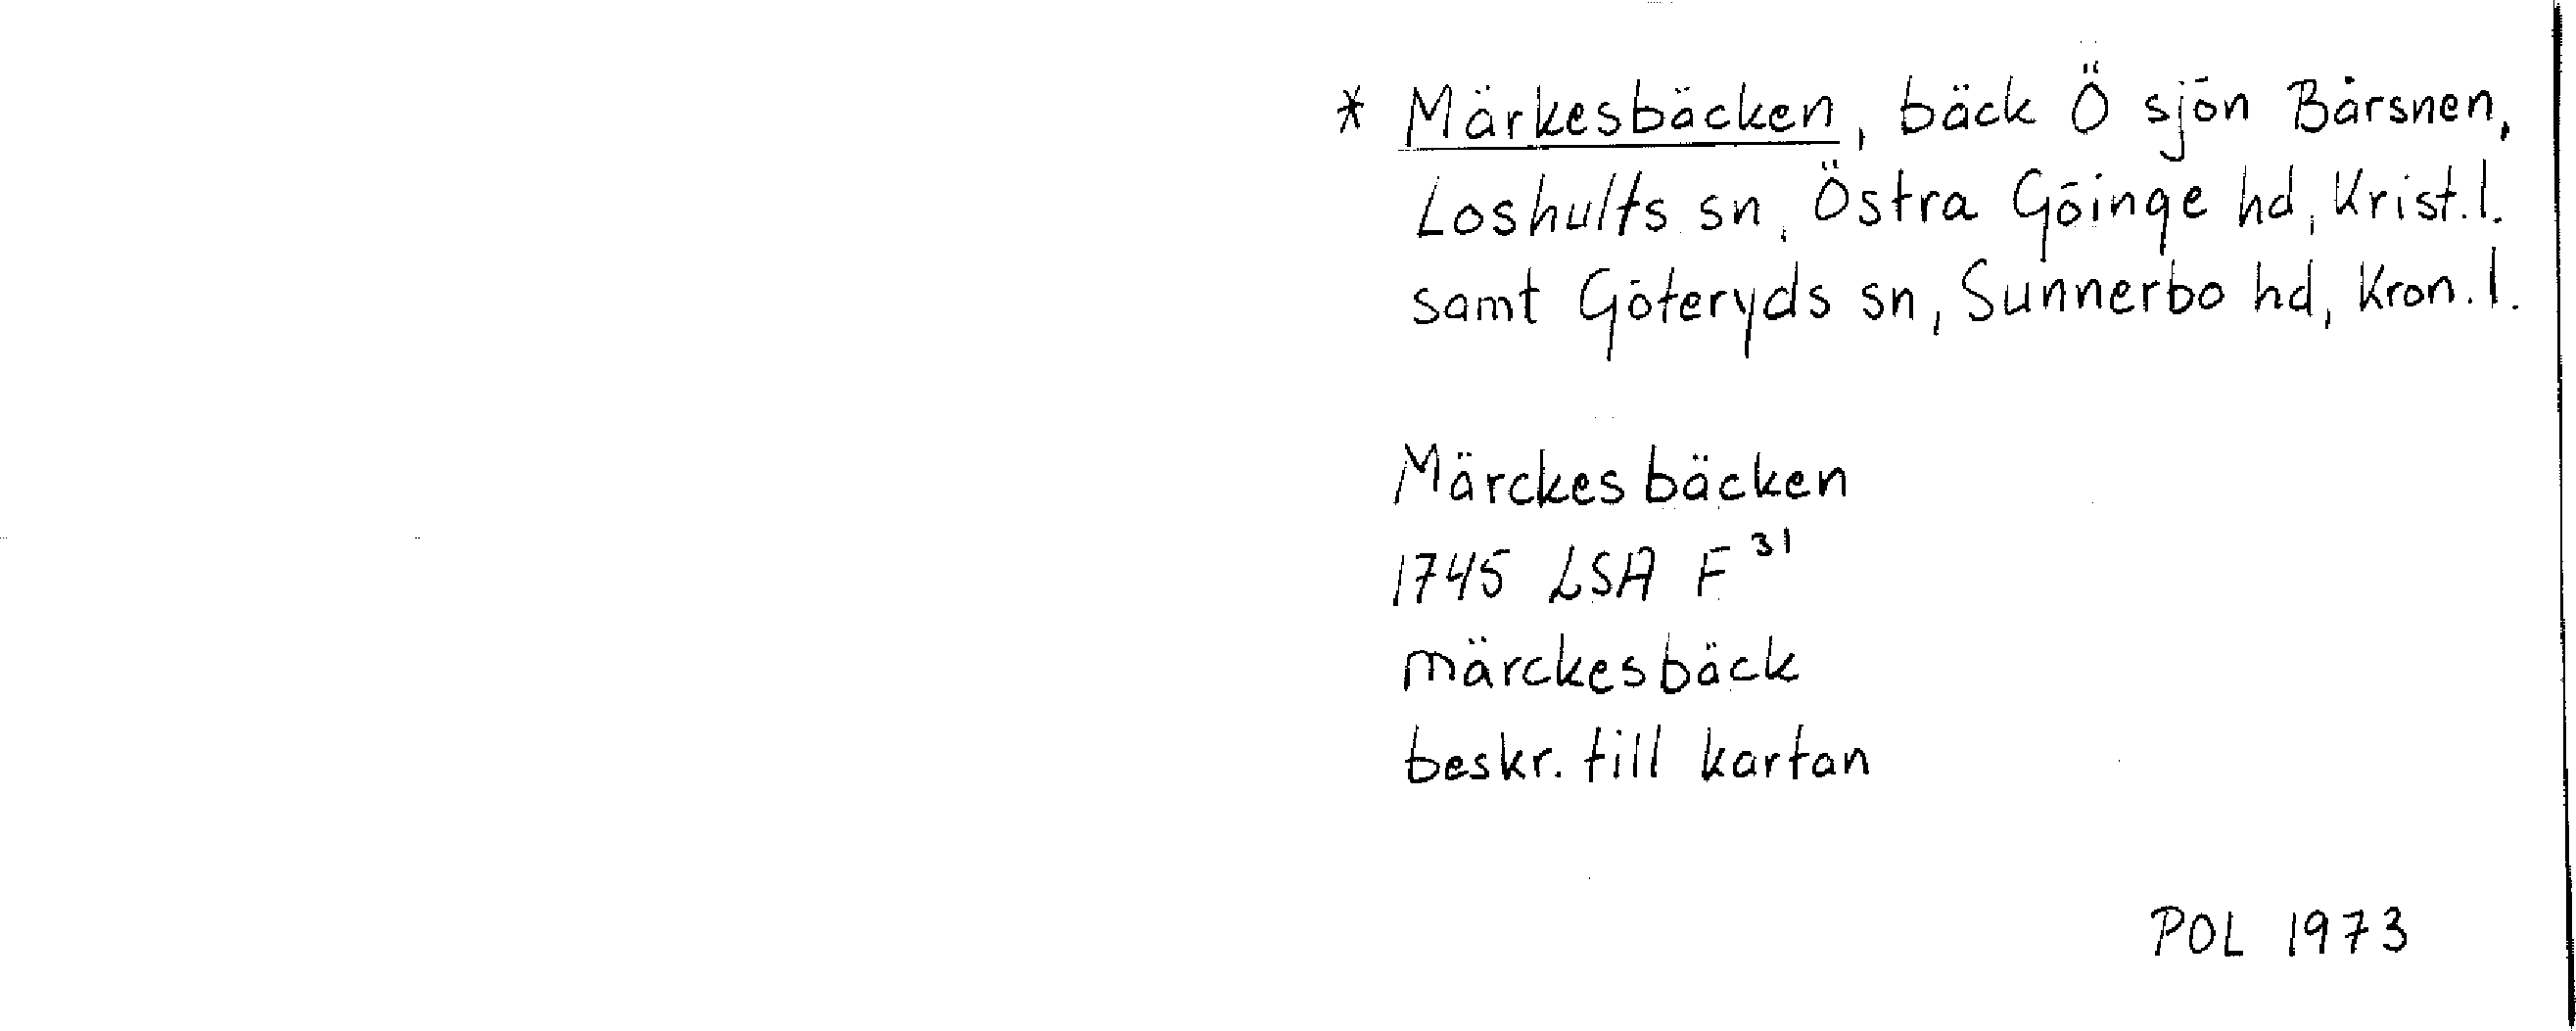 * Märkesbäcken, bäck Ö sjön Bårsnen,
Loshults sn, Östra Göinge hd, Krist.l.
samt Göteryds sn, Sunnerbo hd, Kron.l.
Märckesbäcken
1745 LSA F³¹
märckesbäck
beskr. till kartan
POL 1973